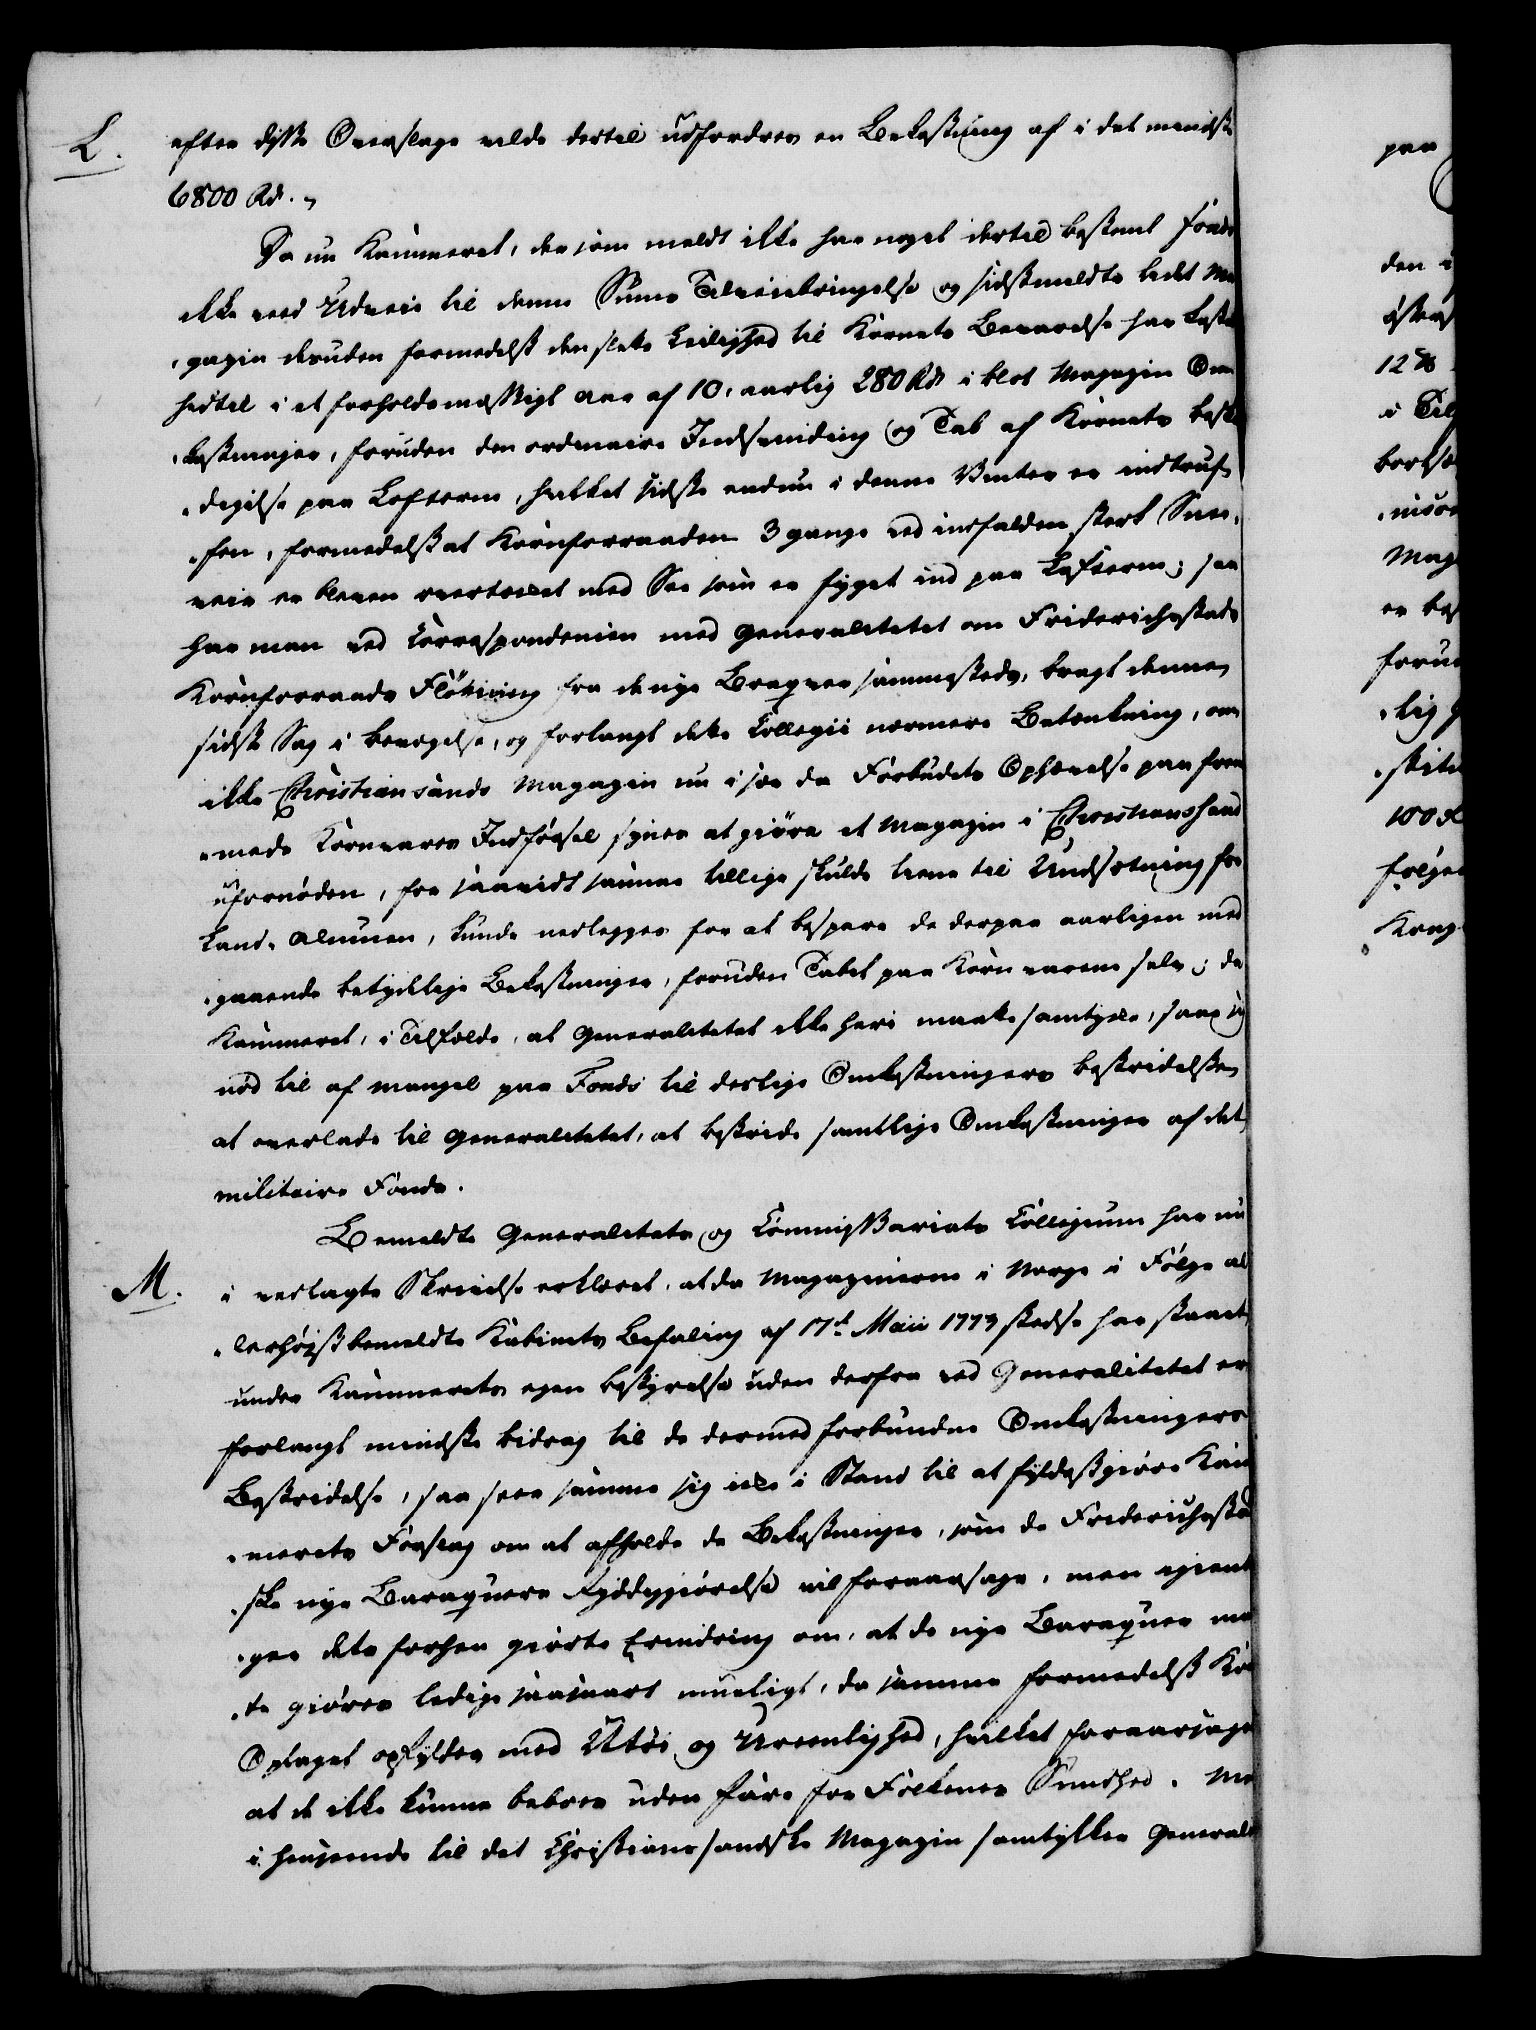 L. efter disse Overslage vilde dertil udfordres en Bekostning af i det mindste
6800 Rd.
Da nu Kammeret, der som meldt ikke har noget dertil bestemt Fond
ikke veed Udveie til denne Summes Tilveiebringelse og sidstmeldte lidet Ma
„gazin desuden formedelst den slette Leilighed til Kornets Bevarelse har kostet
hidtil i et forholdsmæssigt Aar af 10, aarlig 280 Rd i blot Magazin Om
„kostninger, foruden den ordinaire Indsvinding og Tab af Kornets beska
„digelse paa Lofterne, hvilket sidste endnu i denne Vinter er indtruf
„fen, formedelst at Kornforraaden 3 gange ved indfalden sterk Snee,
veir er bleven overtrækket med Snee som er fyget ind paa Lofterne; saa
har man ved Correspondencen med Generalitetet om Friderichsstads
Kornforraads Fløtning fra de nye Braqver sammesteds, bragt denne
sidste Sag i bevægelse, og forlangt dette Collegii nærmere Betænkning, om
ikke Christiansands Magazin nu i sær da Forbudets Ophævelse paa frem
„mede Kornvarers Indførsel synes at giøre et Magazin i Christianssand
ufornøden, for saavidt samme tillige skulde tiene til Undsætning for
Land-Almuen, kunde nedlegges for at bespare de derpaa aarligen med
„gaaende betydelige Bekostninger, foruden Tabet paa Kornvarerne selv; da
Kammeret, i Tilfælde, at Generalitetet ikke heri maatte samtykke, saae sig
nød til af Mangel paa Fonds til deslige Omkostningers bestridelse
at overlade til Generalitetet, at bestride samtlige Omkostninger af det
militaire Fonds.
Bemeldte Generalitets og Commissariats Collegium har nu
M. i vedlagte Skrivelse erklæret, at da Magazinerne i Norge i Følge al
„lerhøjstbemeldte Kabinets Befaling af 17de Maii 1773 stedse har staaet
under Kammerets egen bestyrelse uden derfra ved Generalitetet er
forlangt mindste bidrag til de dermed forbundne Omkostningers
Bestridelse, saa seer samme sig ikke i Stand til at fyldestgiøre Kam
„merets Forslag om at afholde de Bekostninger, som de Friderichsstad
„ske nye Baraqvers Ryddiggiørelse vil foraarsage, men igient
„ger dets forhen giorte Erindring om, at de nye Baraqver maa
„te giøres ledige saasnart mueligt, da samme formedelst Korn
Oplaget opfyldes med Utøi og Ureenlighed, hvilket foraarsager
at de ikke kunne beboes uden fare for Folkenes Sundhed. Me
i henseende til det Christianssandske Magazin samtykker General
paa
den i
12 ß
i Til
Mag
er be
forud
„lig
100 R
følge